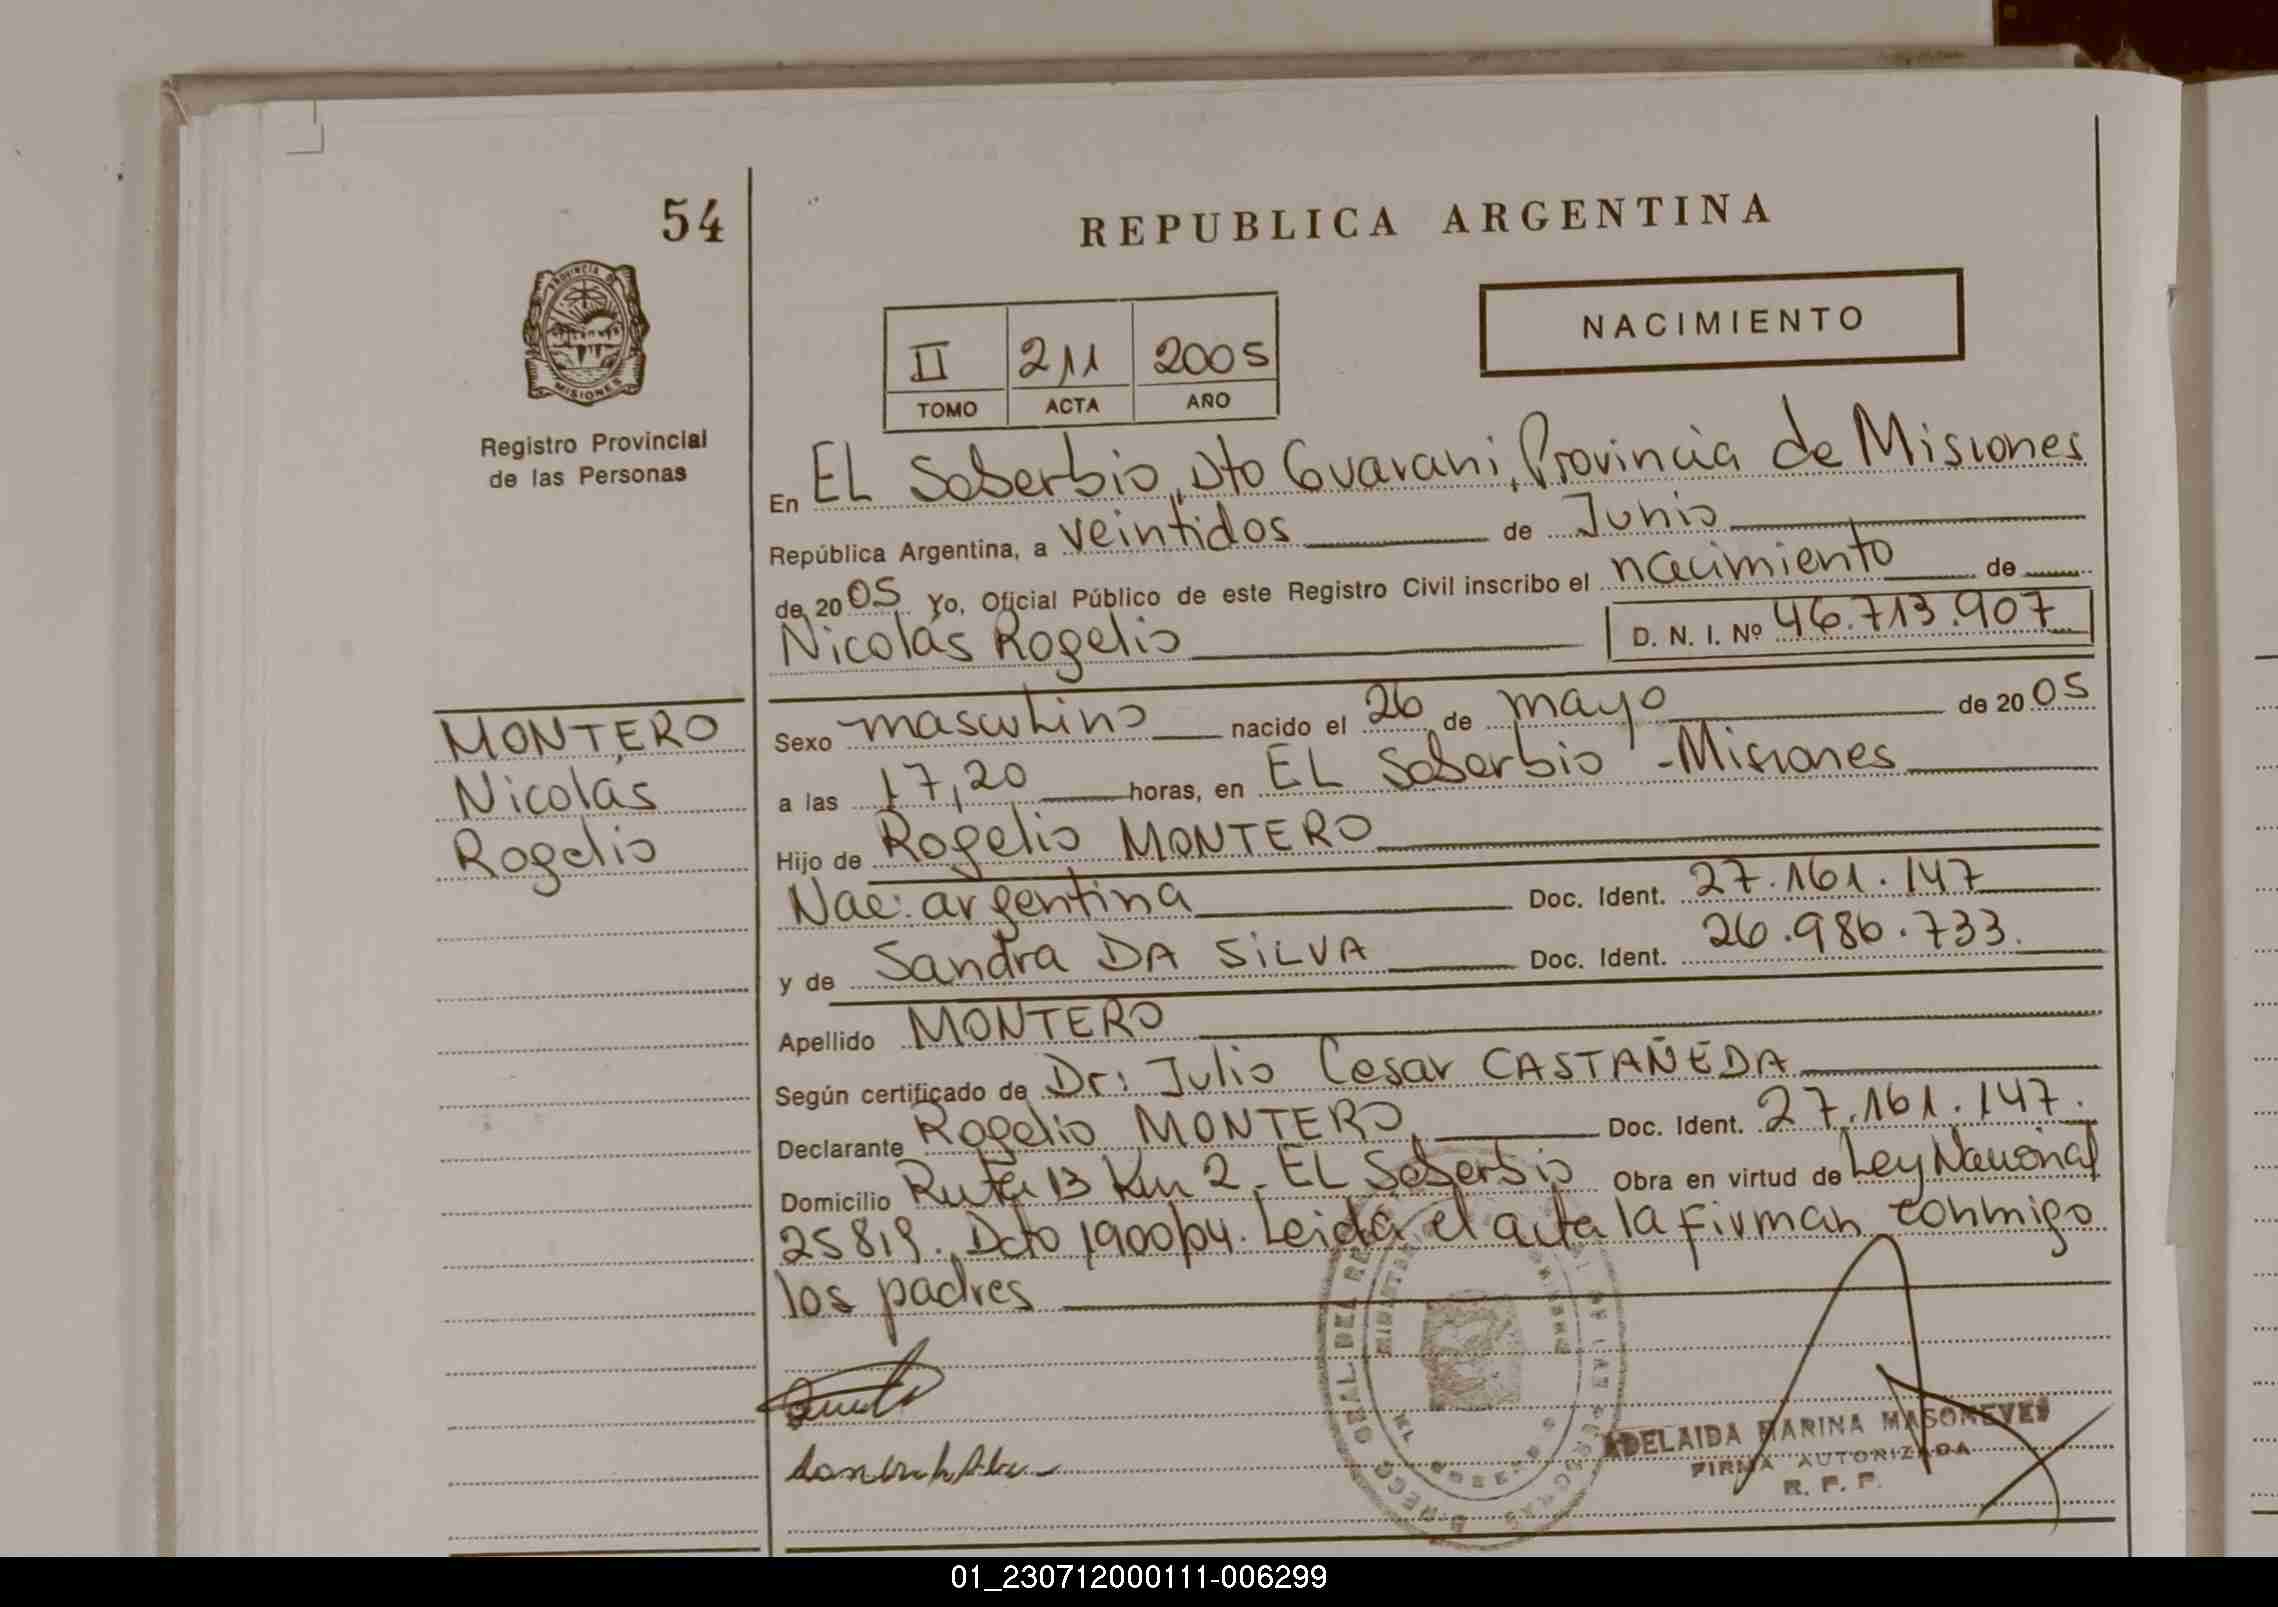 54
REPUBLICA ARGENTINA
PROVINCIA DE
MISIONES
Registro Provincial
de las Personas
NACIMIENTO
II 211 2005
TOMO ACTA AÑO
En EL Soberbio, Dto Guarani, Provincia de Misiones
República Argentina, a veintidos de Junio
de 2005 Yo, Oficial Público de este Registro Civil inscribo el nacimiento de
Nicolás Rogelio D. N. I. Nº 46.713.907
MONTERO
Nicolás
Rogelio
Sexo masculino nacido el 26 de mayo de 2005
a las 17,20 horas, en EL Soberbio - Misiones
Hijo de Rogelio MONTERO
Nac: argentina Doc. Ident. 27.161.147
y de Sandra DA SILVA Doc. Ident. 26.986.733.
Apellido MONTERO
Según certificado de Dr: Julio Cesar CASTAÑEDA
Declarante Rogelio MONTERO, Doc. Ident. 27.161.147.
Domicilio Ruta 13 Km 2 - EL Soberbio Obra en virtud de Ley Nacional
25819. Dcto 1900/04. Leida el acta la firman conmigo
los padres
ADELAIDA MARINA MASONEVES
FIRMA AUTORIZADA
R. P. P.
01_230712000111-006299